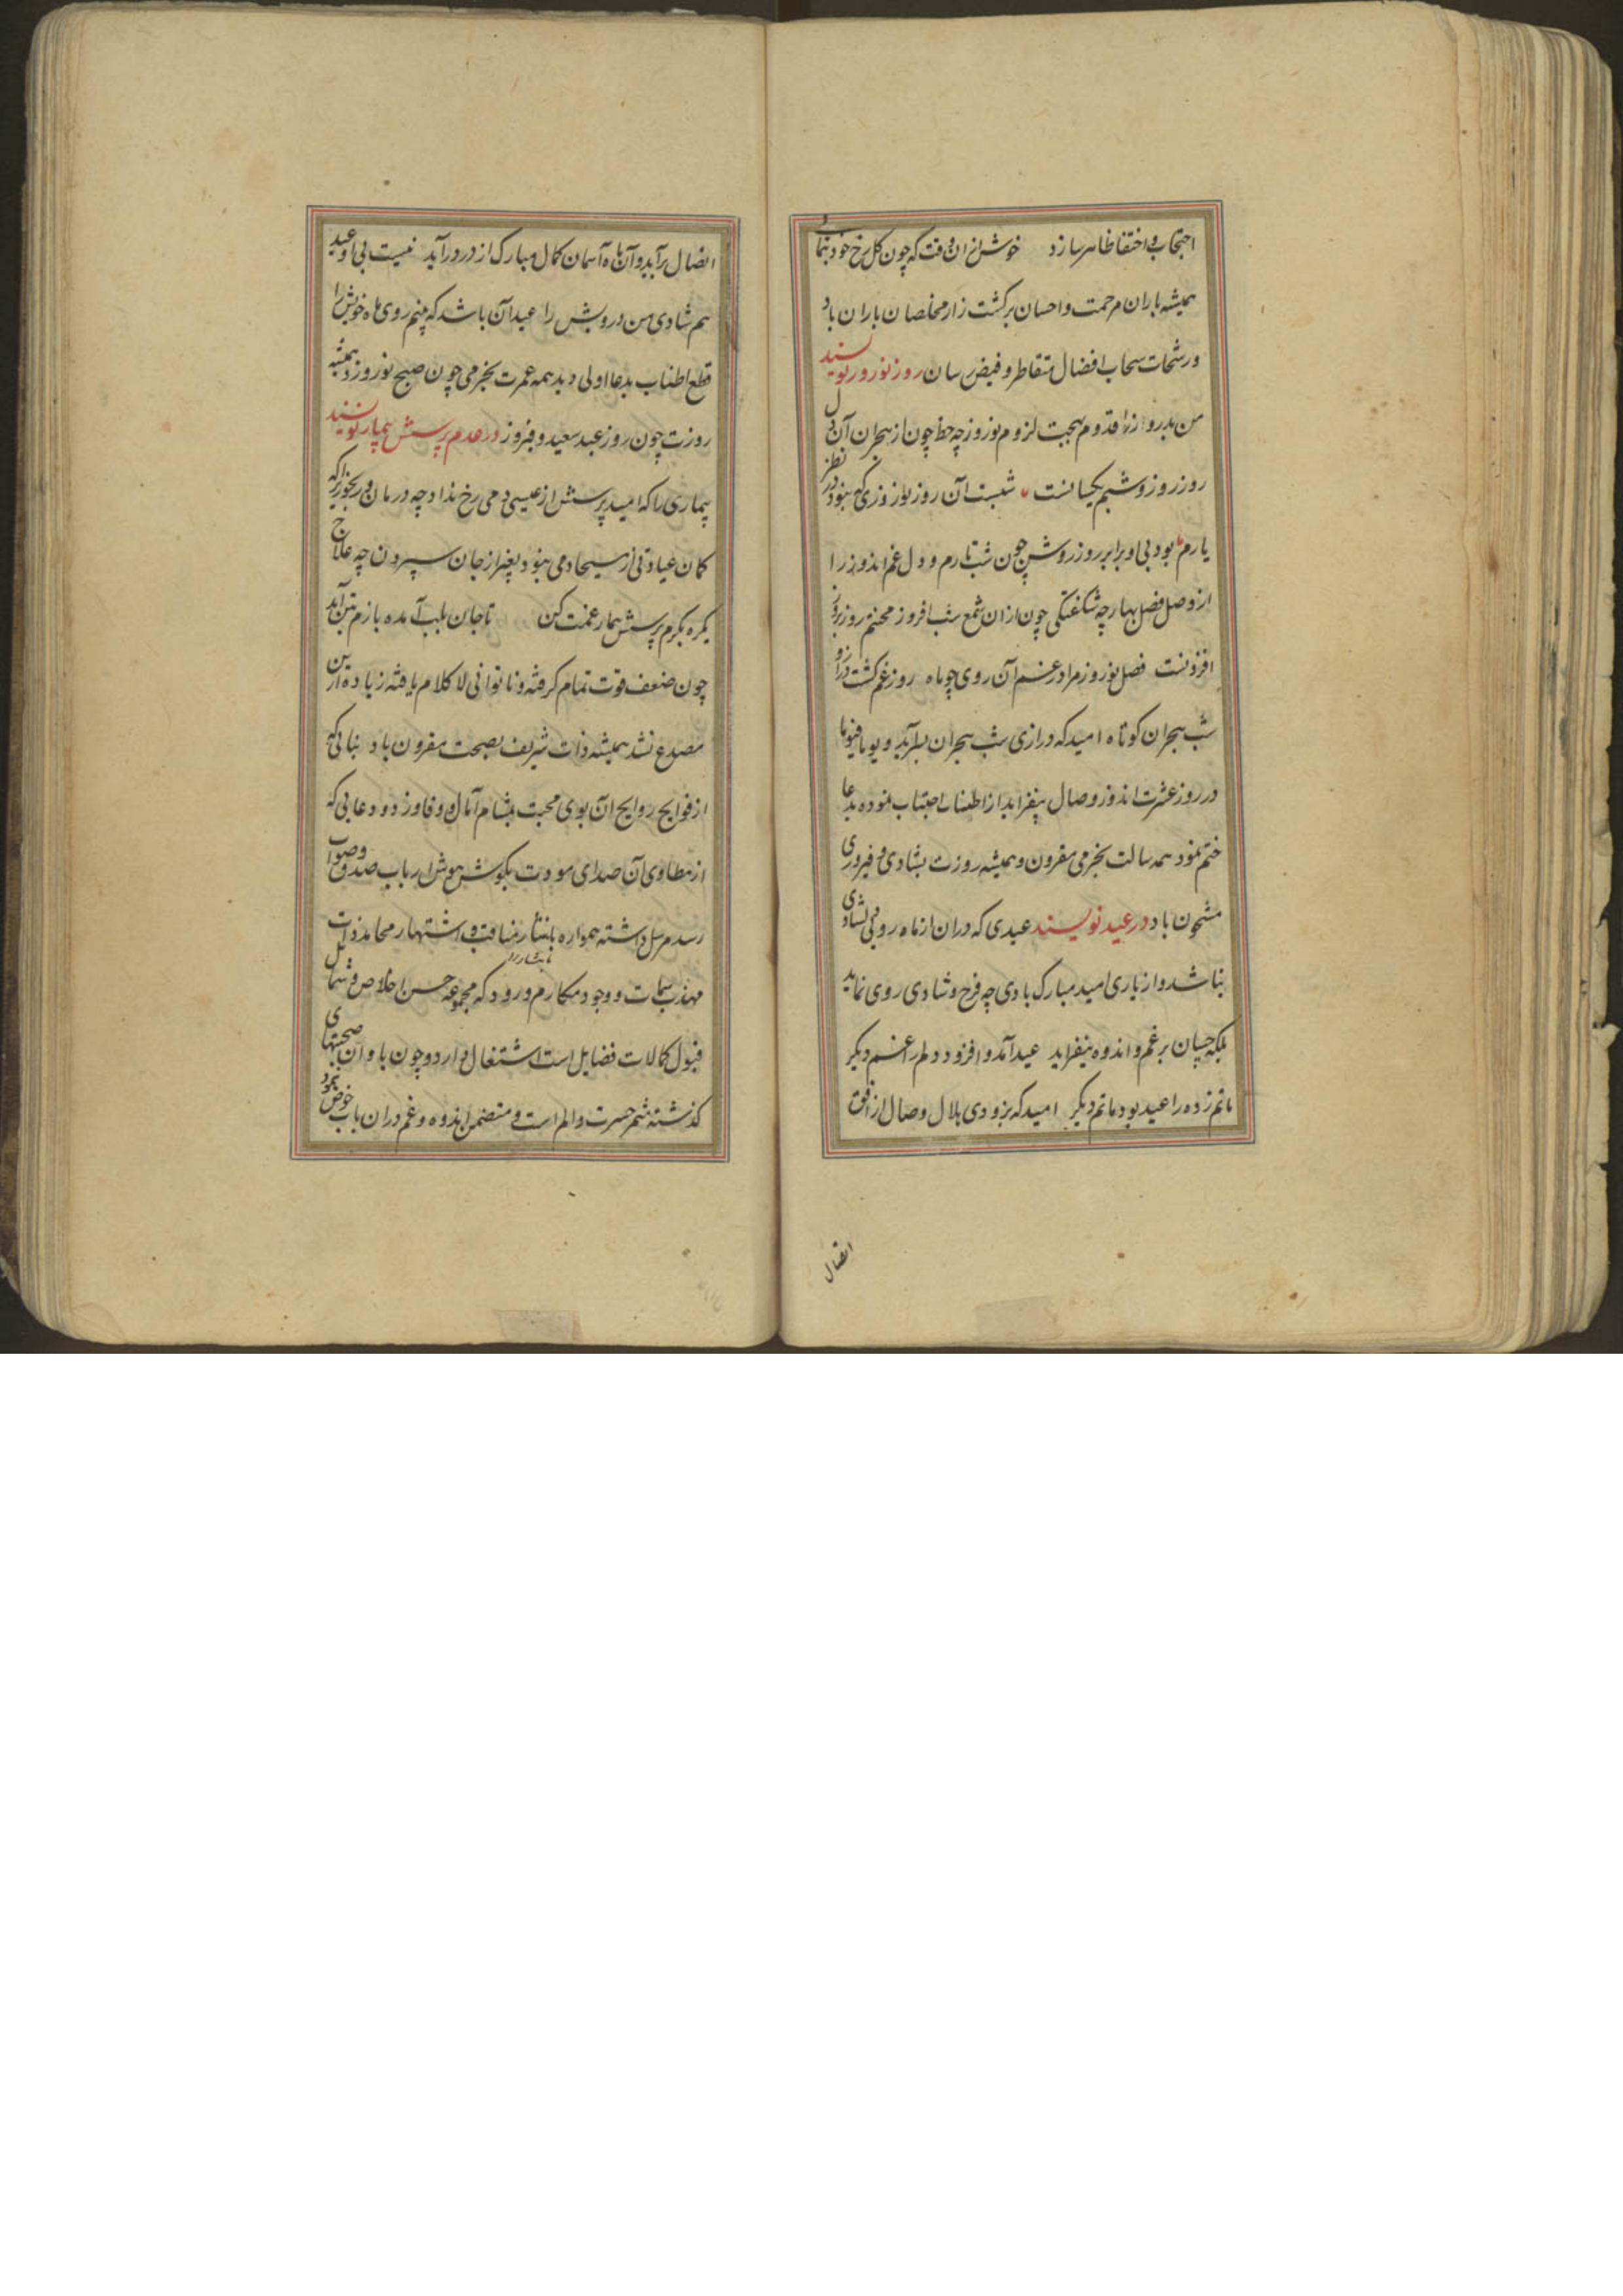 احتجاب و اختفا ظاهر سازد خوش از ان وقت که چون کل رخ خود بنماید
همیشه باران مرحمت و احسان بر کشت زار مخلصان باران باد
و رشحات سحاب افضال متقاطر و فیض رسان روز نوروز نویسند
من بدروز را از قدوم بهجت لزوم نوروز چه حظ چون از هجران آن دل
روز روز و شبم یکسانست شبست آن روز نوروزی که نبود در نظر
یارم بود بی او برابر روز روشن چون شب تارم و دل غم اندوز را
از وصل فصل بهار چه شکفتکی چون از ان شمع شب افروز محنتم روز بروز
افزونست فصل نوروز مرا در غم آن روی چو ماه روز غم کشت دراز و
شب هجران کوتاه امید که درازی شب هجران بسر آید و یوما فیوما
در روز عشرت اندوز وصال بیفزاید از اطناب اجتناب نموده بدعا
ختم نمود همه سالت بخرمی مقرون و همیشه روزت بشادی و فیروزی
مشحون باد در عید نویسند عیدی که در ان از ماه رویی شادی
نباشد و از یاری امید مبارک بادی چه فرح و شادی روی نماید
بلکه چسان بر غم و اندوه نیفزاید عید آمد و افزود دلم را غم دیکر
ماتم زده را عید بود ماتم دیکر امید که بزودی هلال وصال از افق
اتصال
اتصال بر آید و آن ماه آسمان کمال مبارک از در در آید نیست بی او عید
هم شادی من درویش را عید آن باشد که بینم روی ماه خویش را
قطع اطناب بدعا اولی دید همه عمرت بخرمی چون صبح نوروز و همیشه
روزت چون روز عید سعید و فیروز در عدم پرسش بیمار نویسند
بیماری را که امید پرسش از عیسی دمی رخ نداد چه درمان و رنجوری را که
کمان عیادتی از مسیحا دمی نبود بغیر از جان سپردن چه علاج
یکره بکرم پرسش بیمار غمت کن تا جان بلب آمده بازم بتن آید
چون ضعف قوت تمام کرفته و ناتوانی لا کلام یافته زیاده ازین
مصدع نشد همیشه ذات شریف بصحت مقرون باد ثنائی که
از فوایح روایح آن بوی محبت بمشام آمال و وفا وزد و دعایی که
از مطاوی آن صدای مودت بکوش هوش ارباب صدق و صواب
رسد مرسل داشته همواره بانتشار مناقب و اشتهار محامد ذات
مهذب سمات و وجود مکارم ورود که مجموعه حسن اخلاص و شمایل
قبول کمالات فضایل است اشتغال دارد و چون یاد آن صحبتهای
کذشته مثمر حسرت و الم است و متضمن اندوه و غم در ان باب خوض نمود